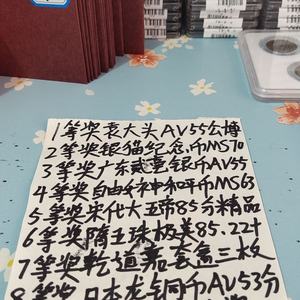 1等奖袁大头AV55公博
2等奖银猫纪念币MS70
3等奖广东贰毫银币AV55
4等奖自由女神和平币MS63
5等奖宋代大五帝85分精品
6等奖隋五珠极美85.22t
7等奖乾道嘉套禽三枚
8等奖日本龙铜币AV53分